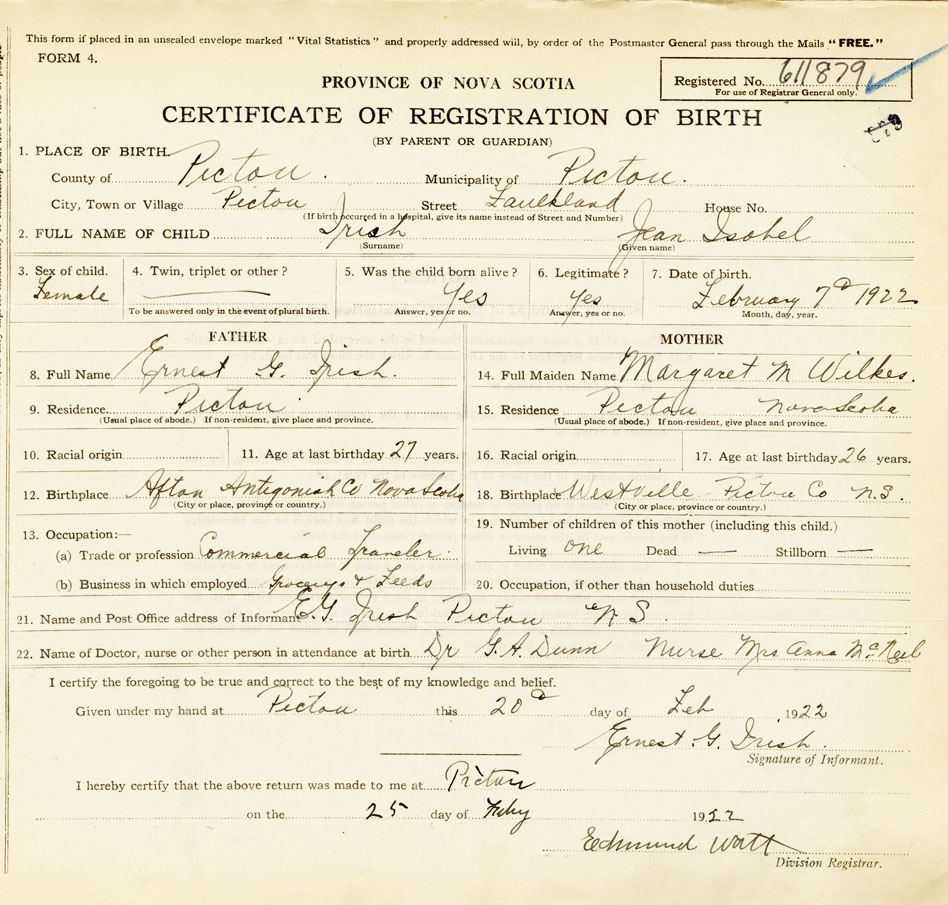 This form if placed in an unsealed envelope marked "Vital Statistics" and properly addressed will, by order of the Postmaster General pass through the Mails "FREE."
FORM 4.
Registered No. 611879
For use of Registrar General only.
PROVINCE OF NOVA SCOTIA
CERTIFICATE OF REGISTRATION OF BIRTH
(BY PARENT OR GUARDIAN)
1. PLACE OF BIRTH
County of Pictou. Municipality of Pictou.
City, Town or Village Pictou Street Faulkland House No.
(If birth occurred in a hospital, give its name instead of Street and Number)
2. FULL NAME OF CHILD Irish Jean Isobel
(Surname) (Given name)
3. Sex of child. 4. Twin, triplet or other? 5. Was the child born alive? 6. Legitimate? 7. Date of birth.
Female Yes Yes February 7th 1922
To be answered only in the event of plural birth. Answer, yes or no. Answer, yes or no. Month, day, year.
FATHER MOTHER
8. Full Name Ernest G. Irish. 14. Full Maiden Name Margaret M Wilkes.
9. Residence Pictou 15. Residence Pictou Nova Scotia
(Usual place of abode.) If non-resident, give place and province. (Usual place of abode.) If non-resident, give place and province.
10. Racial origin 11. Age at last birthday 27 years. 16. Racial origin 17. Age at last birthday 26 years.
12. Birthplace Afton Antigonish Co Nova Scotia 18. Birthplace Westville Pictou Co N.S.
(City or place, province or country.) (City or place, province or country.)
13. Occupation:— 19. Number of children of this mother (including this child.)
(a) Trade or profession Commercial Traveler. Living one Dead — Stillborn —
(b) Business in which employed Grocerys & Feeds 20. Occupation, if other than household duties
21. Name and Post Office address of Informant E.G. Irish Pictou N S.
22. Name of Doctor, nurse or other person in attendance at birth Dr G.A. Dunn Nurse Mrs Anna McNeil
I certify the foregoing to be true and correct to the best of my knowledge and belief.
Given under my hand at Pictou this 20th day of Feb 1922
Ernest G. Irish.
Signature of Informant.
I hereby certify that the above return was made to me at Pictou
on the 25 day of Feby 1922
Edmund Watt
Division Registrar.